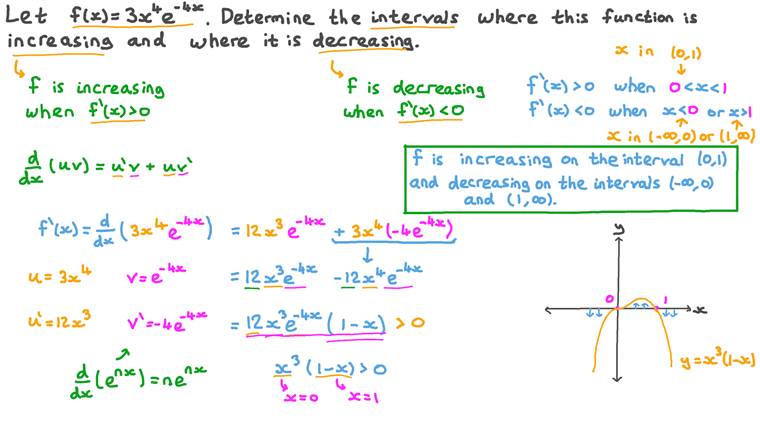 Let f(x) = 3x⁴e⁻⁴ˣ. Determine the intervals where this function is
increasing and where it is decreasing.
f is increasing
when f'(x)>0
f is decreasing
when f'(x)<0
x in (0,1)
f'(x)>0 when 0<x<1
f'(x)<0 when x<0 or x>1
x in (-∞,0) or (1,∞)
f is increasing on the interval (0,1)
and decreasing on the intervals (-∞,0)
and (1,∞).
d/dx (uv) = u'v + uv'
f'(x) = d/dx (3x⁴e⁻⁴ˣ) = 12x³e⁻⁴ˣ + 3x⁴(-4e⁻⁴ˣ)
u = 3x⁴ v = e⁻⁴ˣ = 12x³e⁻⁴ˣ -12x⁴e⁻⁴ˣ
u' = 12x³ v' = -4e⁻⁴ˣ = 12x³e⁻⁴ˣ(1-x) > 0
d/dx (eⁿˣ) = neⁿˣ
x³(1-x) > 0
x=0 x=1
y
0 1 x
y = x³(1-x)